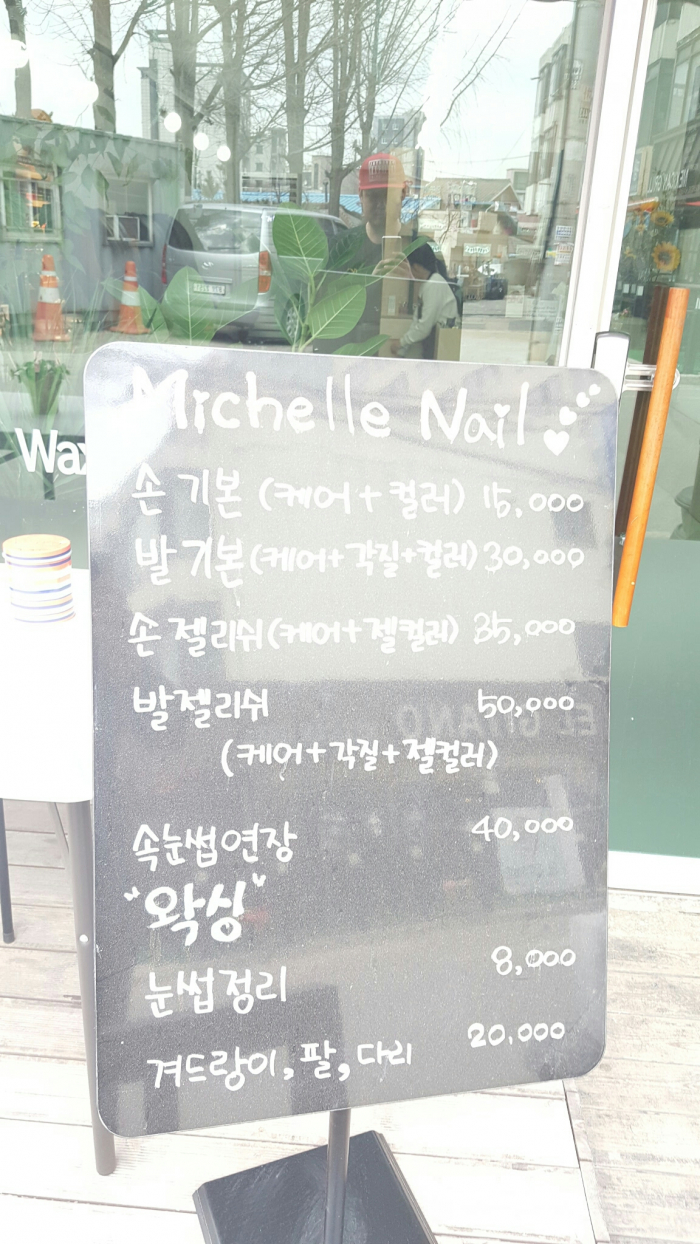 Michelle Nail
손 기본 (케어+컬러) 15,000
발 기본(케어+각질+컬러) 30,000
손 젤리쉬(케어+젤컬러) 35,000
발젤리쉬 50,000
(케어+각질+젤컬러)
속눈썹연장 40,000
"왁싱"
눈썹정리 8,000
겨드랑이, 팔, 다리 20,000
Wax
EL GITANO